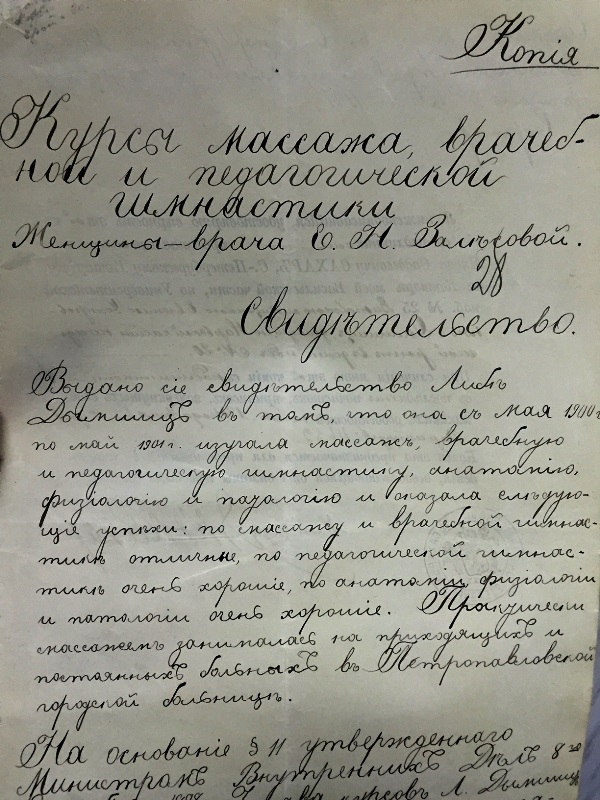 Копія
Курсы массажа, врачеб-
ной и педагогической
гимнастики
Женщины-врача Е. Н. Залѣсовой.
28
Свидѣтельство.
Выдано сіе свидѣтельство Либѣ
Дымшицъ въ томъ, что она съ мая 1900 г
по май 1901 г. изучала массажъ, врачебную
и педагогическую гимнастику, анатомію,
физіологію и патологію и оказала слѣдую-
щіе успѣхи: по массажу и врачебной гимнас-
тикѣ отличные, по педагогической гимнас-
тикѣ очень хорошіе, по анатоміи, физіологіи
и патологіи очень хорошіе. Практически
массажемъ занималась на приходящихъ и
постоянныхъ больныхъ въ Петропавловской
городской больницѣ.
На основаніе § 11 утвержденнаго
Министромъ Внутреннихъ Дѣлъ 8 го
курсовъ Л. Дымшицъ